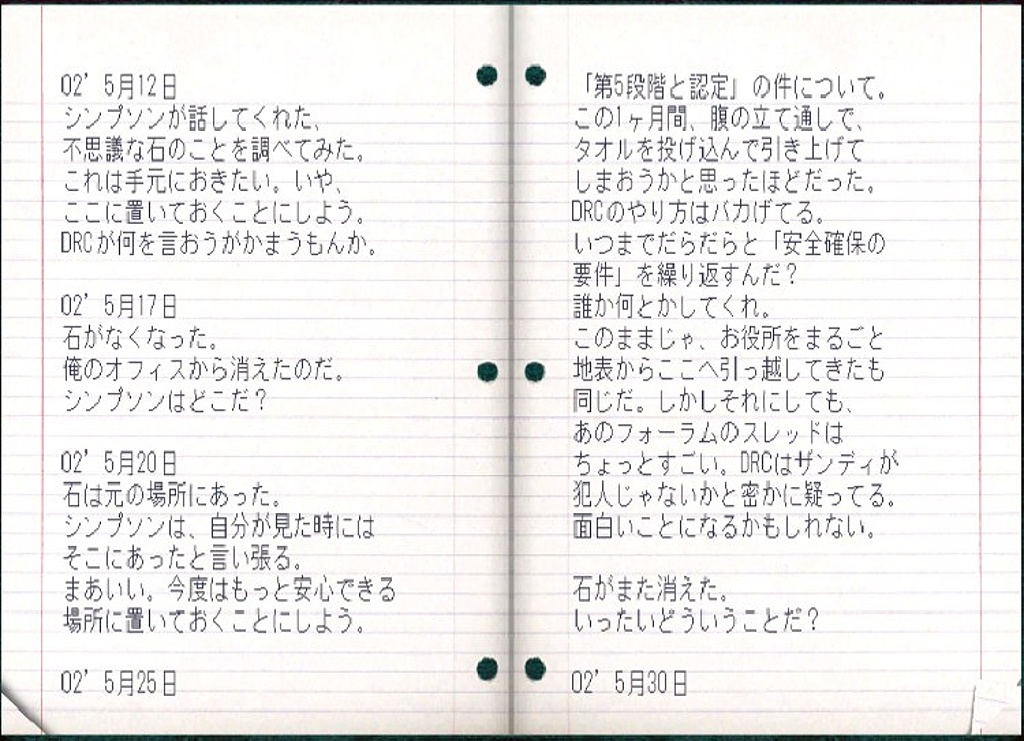 02' 5月12日
シンプソンが話してくれた、
不思議な石のことを調べてみた。
これは手元におきたい。いや、
ここに置いておくことにしよう。
DRCが何を言おうがかまうもんか。
02' 5月17日
石がなくなった。
俺のオフィスから消えたのだ。
シンプソンはどこだ?
02' 5月20日
石は元の場所にあった。
シンプソンは、自分が見た時には
そこにあったと言い張る。
まあいい。今度はもっと安心できる
場所に置いておくことにしよう。
02' 5月25日
「第5段階と認定」の件について。
この1ヶ月間、腹の立て通しで、
タオルを投げ込んで引き上げて
しまおうかと思ったほどだった。
DRCのやり方はバカげてる。
いつまでだらだらと「安全確保の
要件」を繰り返すんだ?
誰か何とかしてくれ。
このままじゃ、お役所をまるごと
地表からここへ引っ越してきたも
同じだ。しかしそれにしても、
あのフォーラムのスレッドは
ちょっとすごい。DRCはザンディが
犯人じゃないかと密かに疑ってる。
面白いことになるかもしれない。
石がまた消えた。
いったいどういうことだ?
02' 5月30日